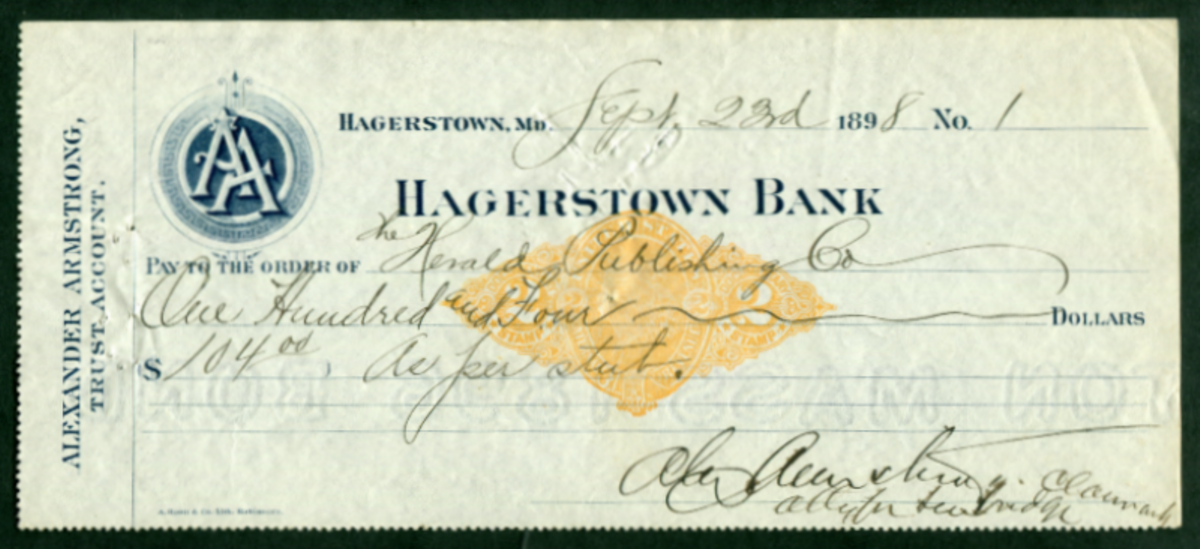 ALEXANDER ARMSTRONG,
TRUST ACCOUNT.
AA
HAGERSTOWN, MD. Sept. 23rd 1898 No. 1
HAGERSTOWN BANK
PAY TO THE ORDER OF the Herald Publishing Co
One Hundred and Four DOLLARS
$ 104 00 As per stub.
Alex Armstrong